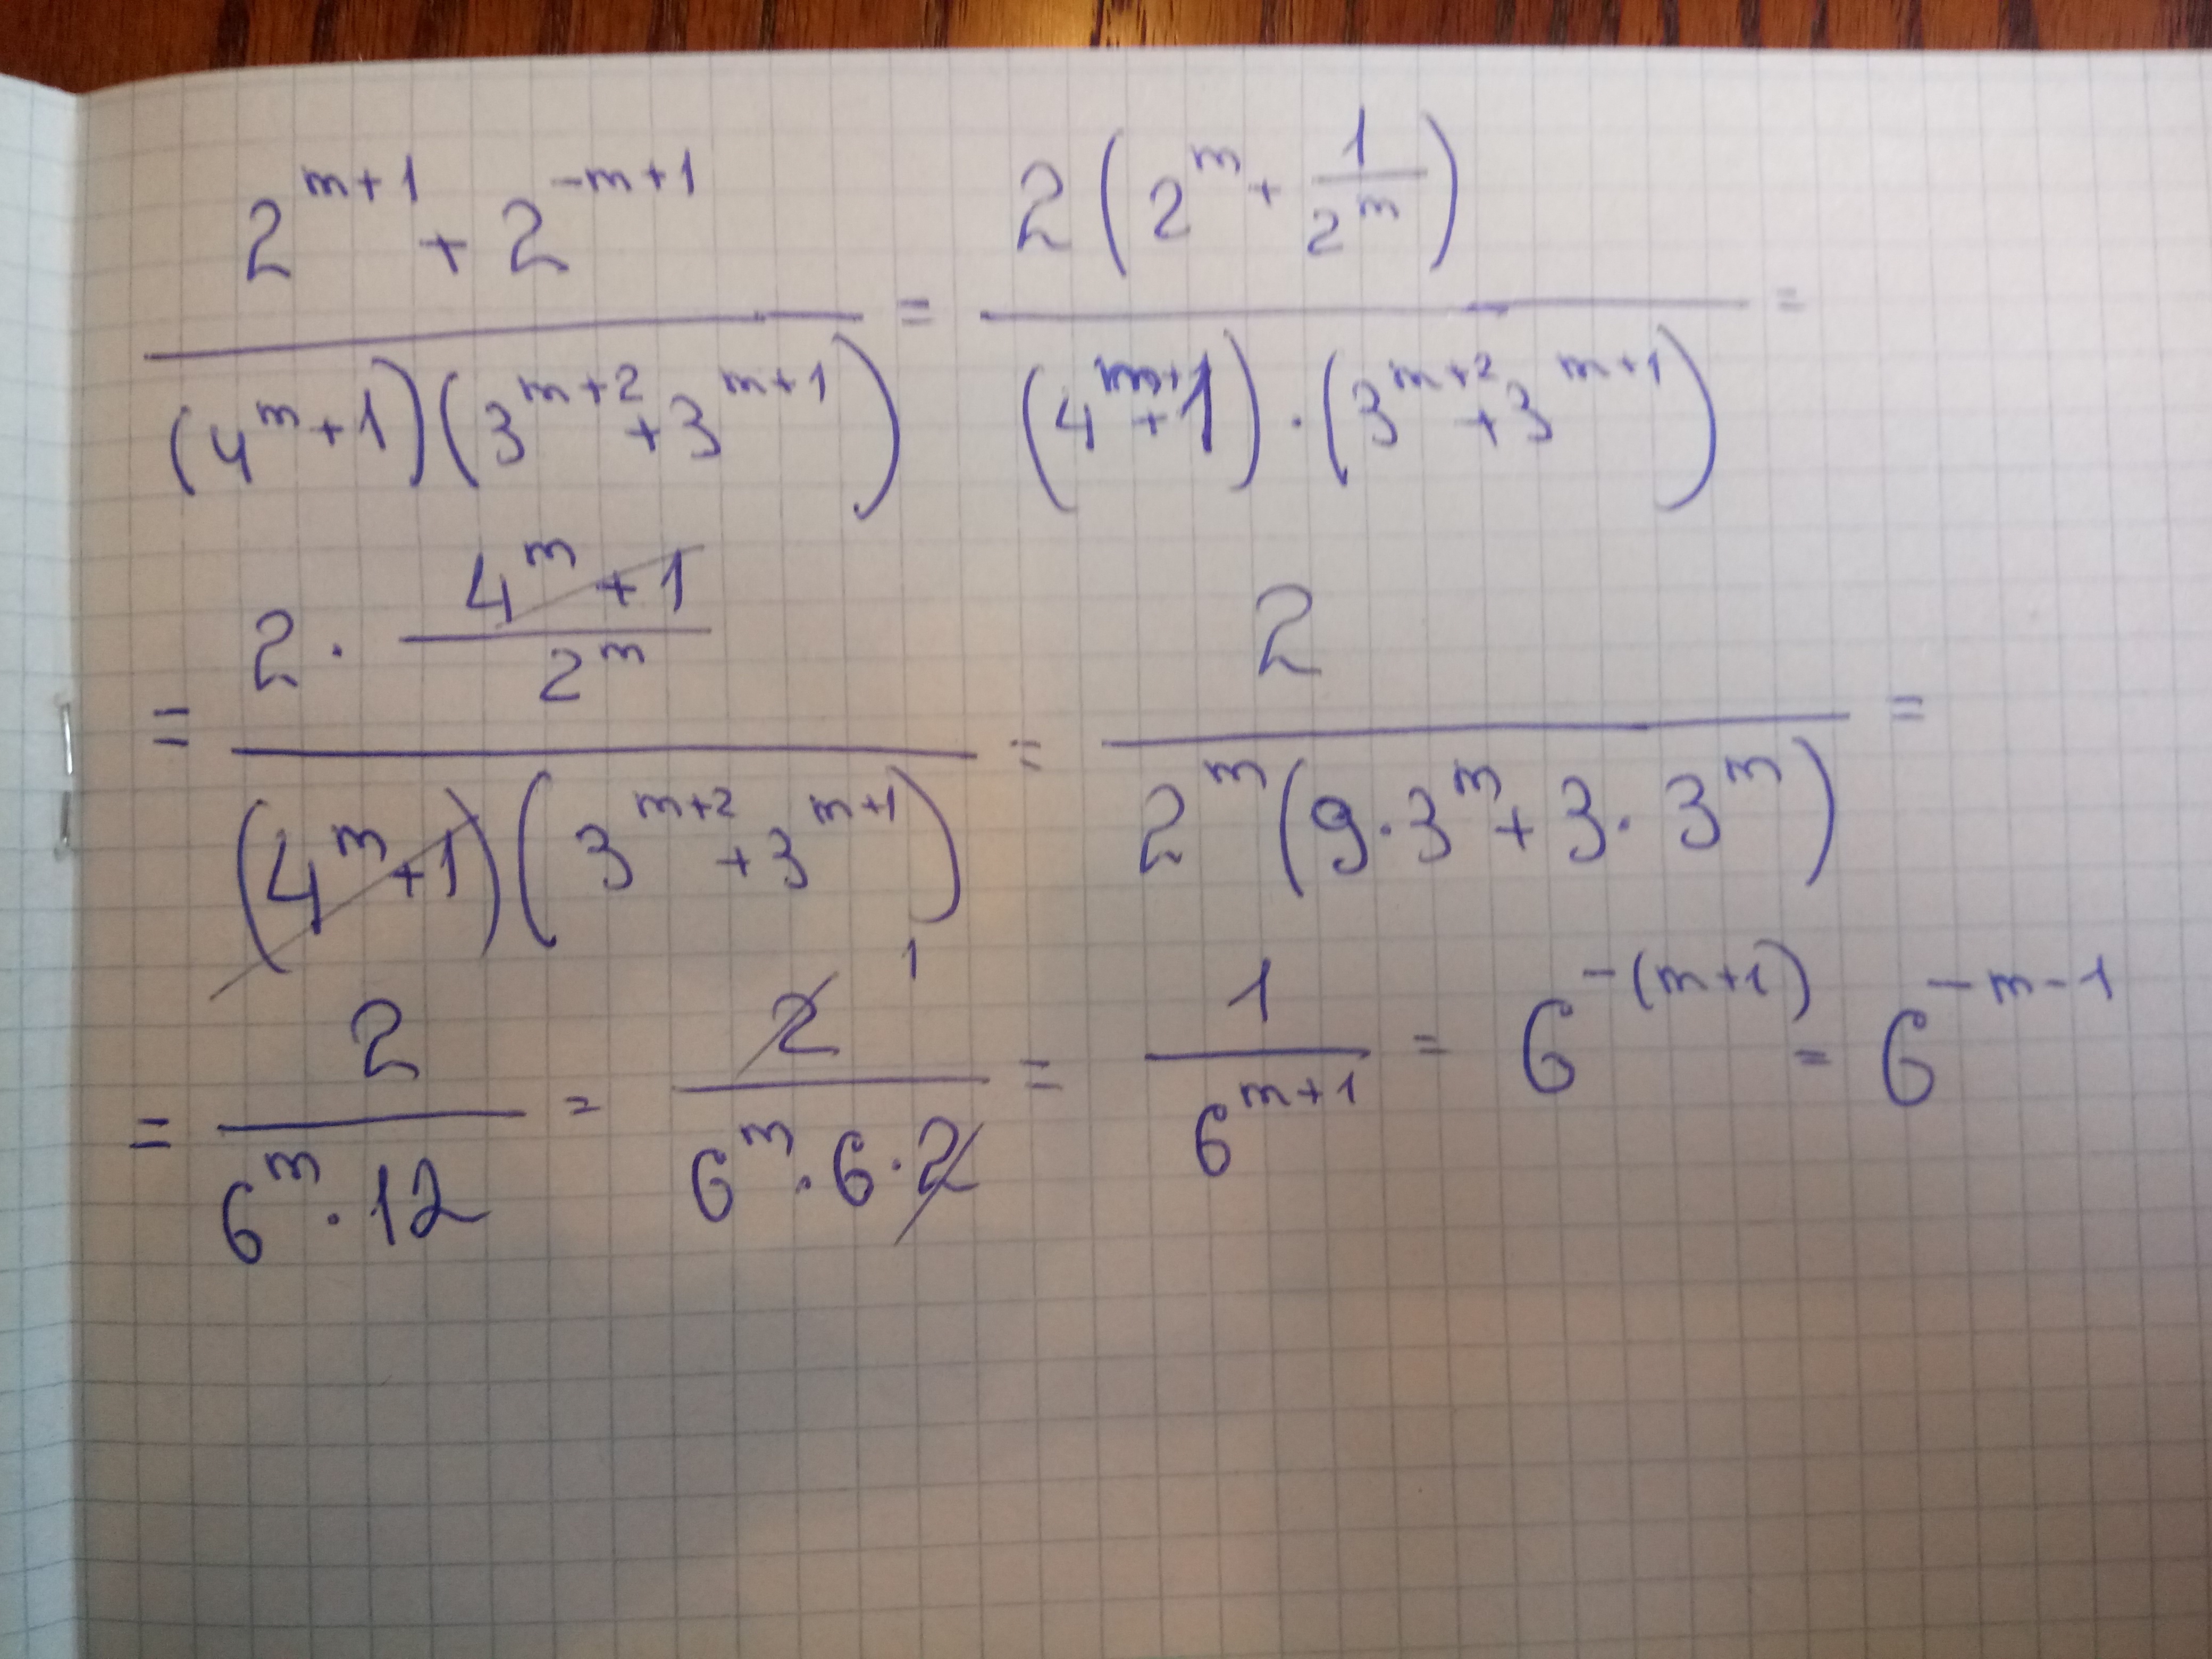 \frac{2^{m+1} + 2^{-m+1}}{(4^m+1)(3^{m+2}+3^{m+1})} = \frac{2(2^m + \frac{1}{2^m})}{(4^m+1)·(3^{m+2}+3^{m+1})} =
= \frac{2 · \frac{4^m+1}{2^m}}{(4^m+1)(3^{m+2}+3^{m+1})} = \frac{2}{2^m(9·3^m+3·3^m)} =
= \frac{2}{6^m·12} = \frac{2^1}{6^m·6·2} = \frac{1}{6^{m+1}} = 6^{-(m+1)} = 6^{-m-1}